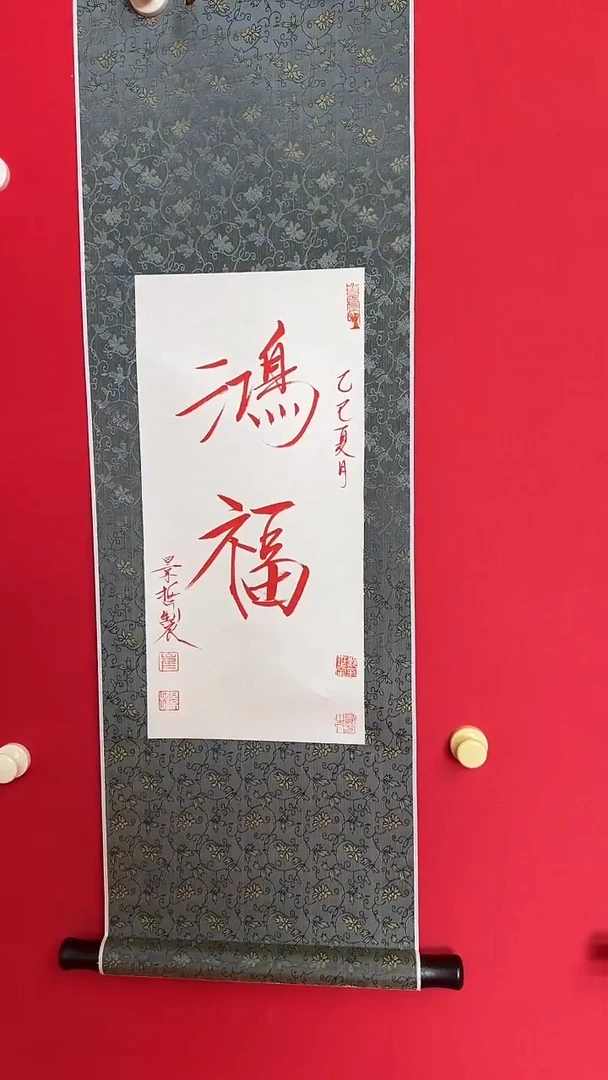 乙巳夏月
鴻福
景哲製